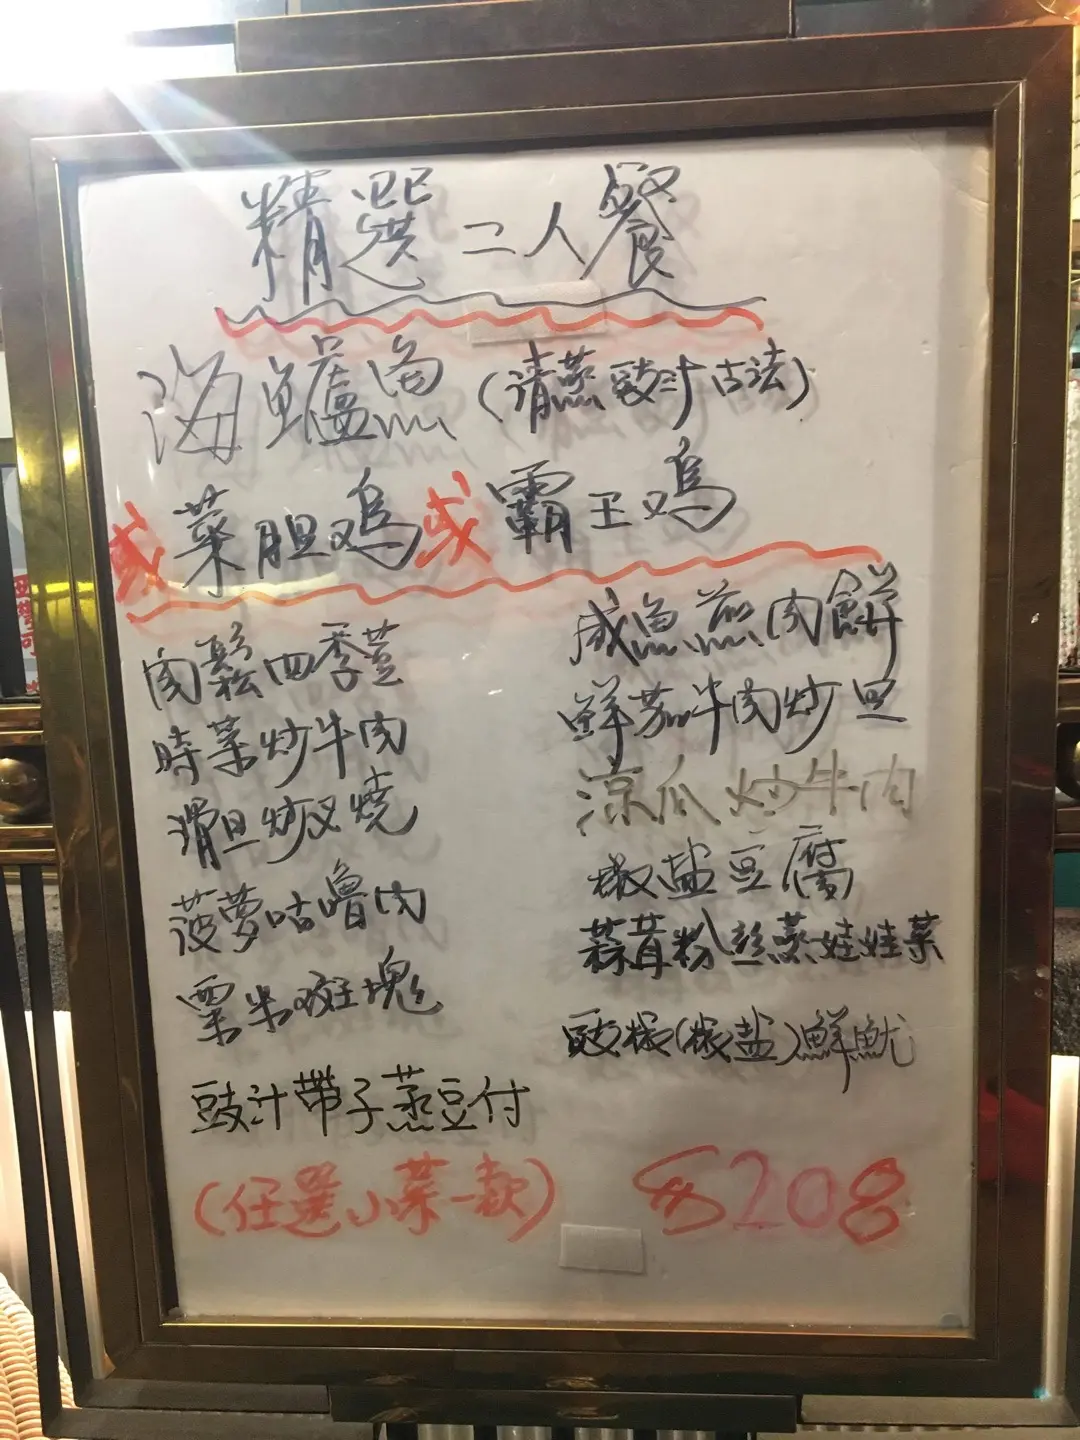 精選二人餐
海鱸魚(清蒸豉汁古法)
或菜胆鸡或霸王鸡
肉鬆四季荳
時菜炒牛肉
滑旦炒叉燒
菠夢咕嚕肉
粟米斑塊
豉汁帶子蒸豆付
咸魚煎肉餅
鮮茄牛肉炒旦
涼瓜炒牛肉
椒盐豆腐
蒜茸粉丝蒸娃娃菜
豉椒(椒盐)鮮魷
(任選小菜一款)
$208